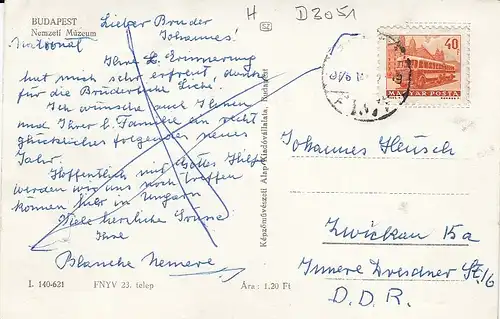 BUDAPEST
Nemzeti Múzeum
National
H D3051
Lieber Bruder
Johannes!
Ihre l. Erinnerung
hat mich sehr erfreut, dank
für die Brüderliche Liebe.
Ich wünsche auch Ihnen
und Ihrer l. Familie ein recht
glückliches folgendes neues
Jahr.
Hoffentlich mit Gottes Hilfe
werden wir uns noch treffen
können hier in Ungarn
Viele herzliche Grüsse:
Ihre
Blanche Nemere
I. 140-621 FNYV 23. telep Ára: 1.20 Ft
Képzőművészeti Alap Kiadóvállalata, Budapest
40
MAGYAR POSTA
Johannes Heusch
Zwickau 15a
Innere Dresdner St. 16
D. D. R.